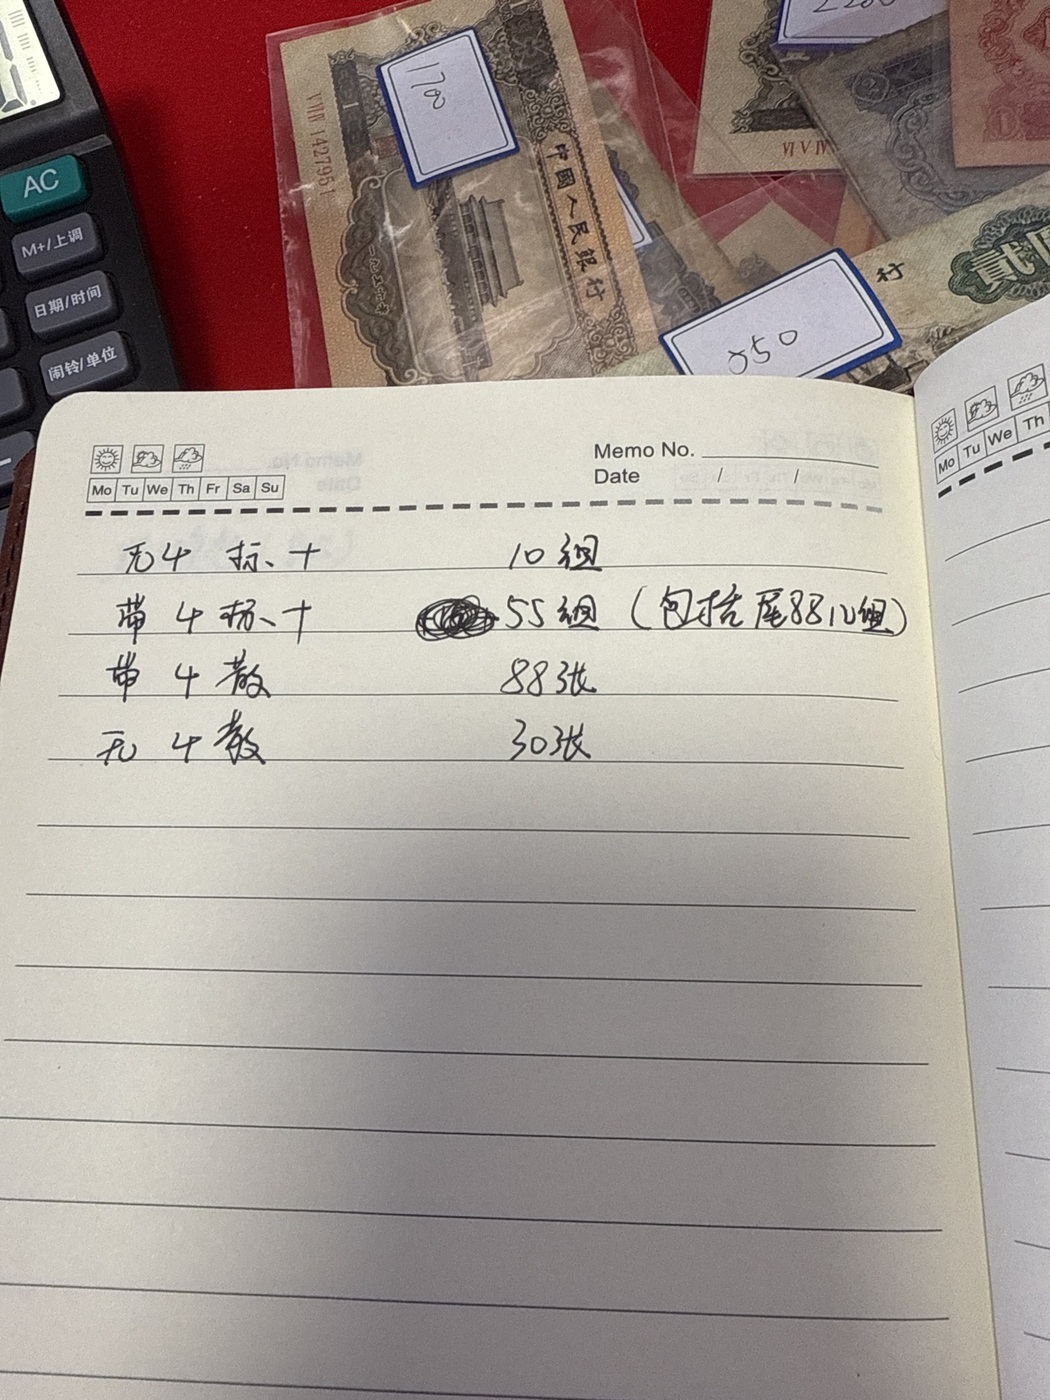 1700
2200
VIVIV
VIIIVIII 1427951
中國人民銀行
行
贰
050
AC
M+/上调
日期/时间
闹铃/单位
Memo No.
Date / /
Mo Tu We Th Fr Sa Su
Mo Tu We Th
无4 标、十 10组
带 4 标、十 55组 (包括尾88 12组)
带 4 散 88张
无 4 散 30张